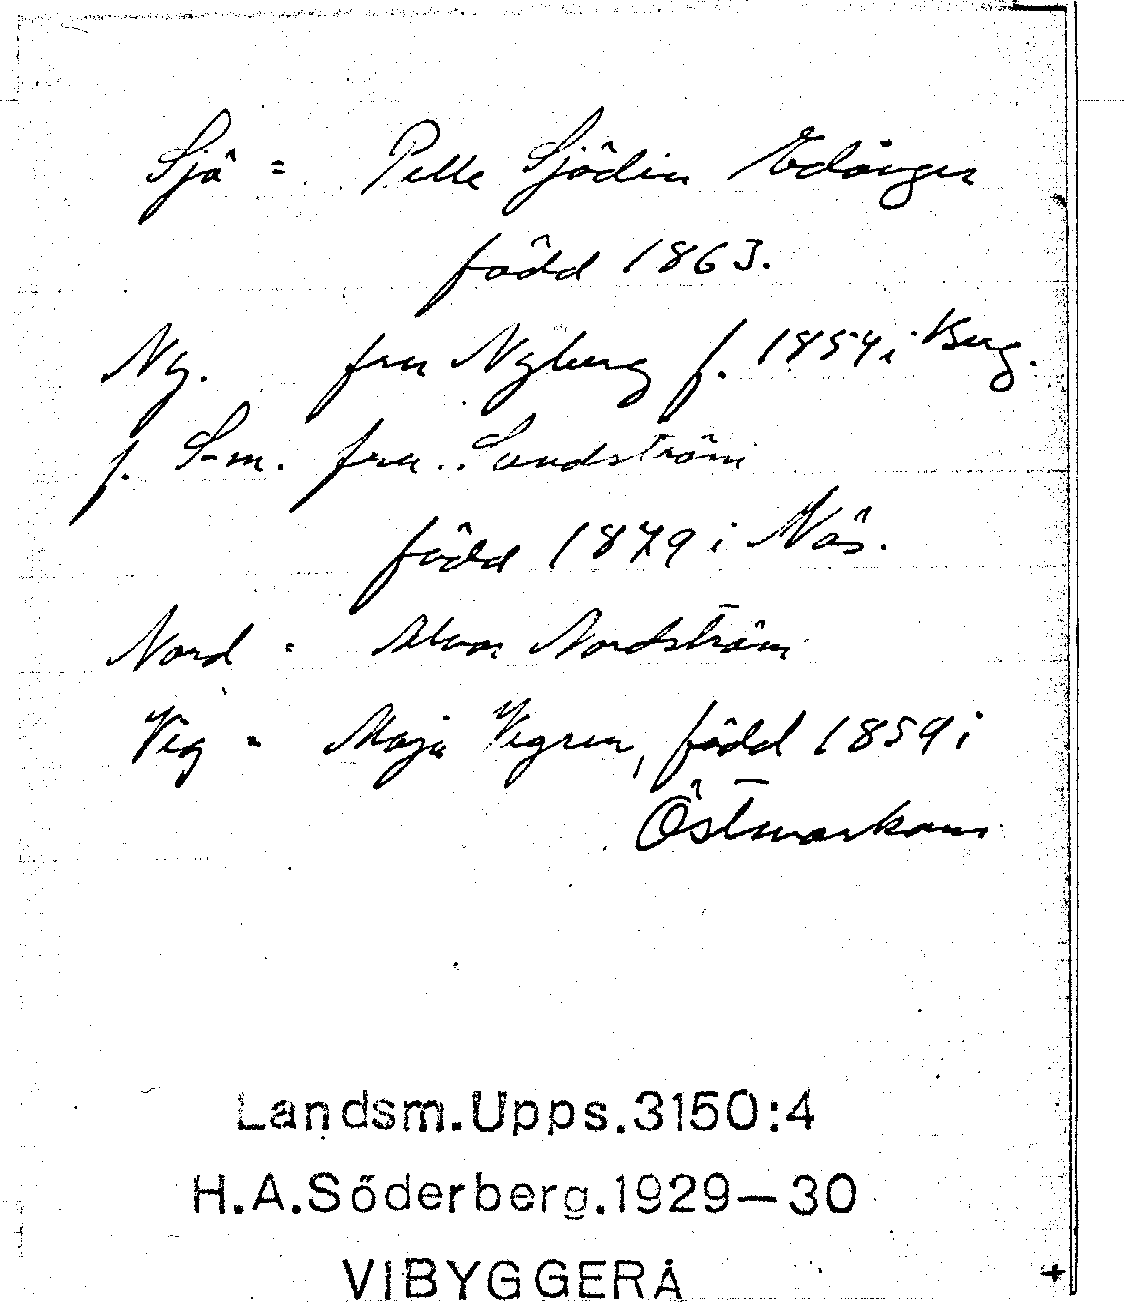 Sjö = Pelle Sjödin Edånger
född 1863.
Ny. fru Nyberg f. 1854 i Berg.
f. S-m. fru Sandström
född 1879 i Näs.
Nord = Nordström
Vig = Maja Vigren, född 1859 i
Östmarkum
Landsm.Upps.3150:4
H.A.Söderberg.1929-30
VIBYGGERÅ